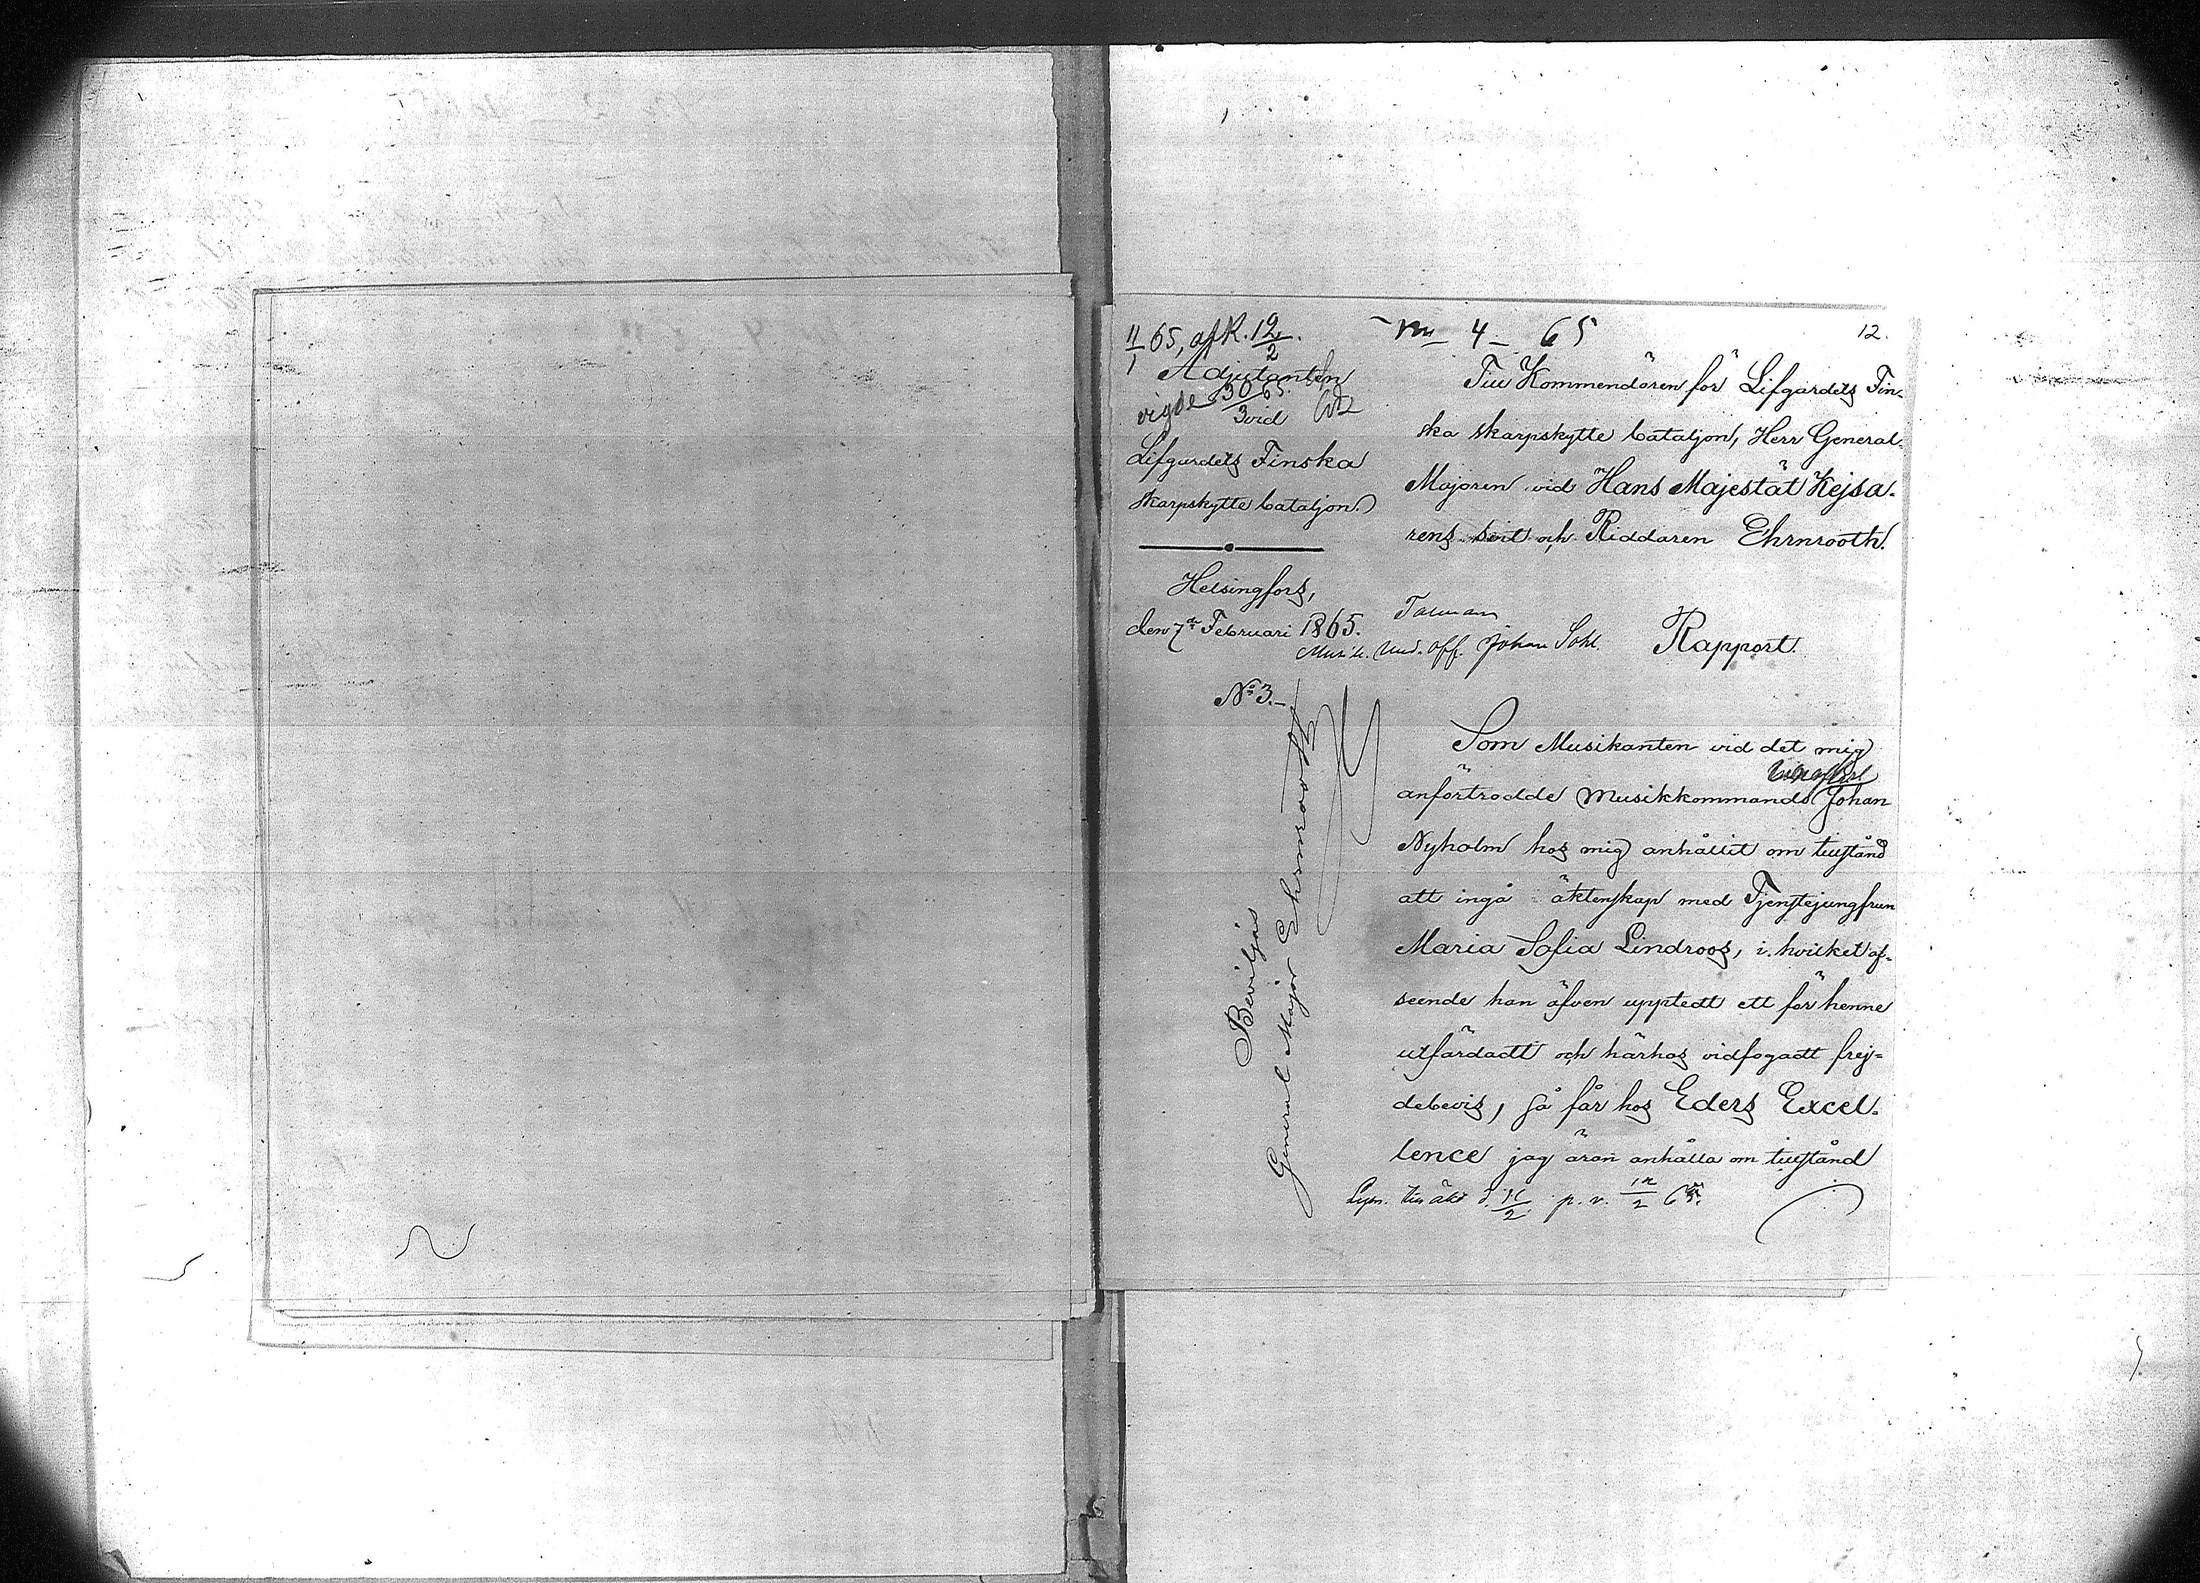 11/1 65, afk. 12/2.
Adjutanten
vigde 30/3 65.
vid
Lifgardets Finska
skarpskytte bataljon.
Helsingfors,
den 7de Februari 1865.
No 3.
4 65
12.
Till Kommendören för Lifgardets Fin-
ska skarpskytte bataljon, Herr General-
Majoren vid Hans Majestät Kejsa-
rens svit och Riddaren Ehrnrooth.
Taleman
Musik. Und. off. Johan Sohl.
Rapport.
Beviljas
General Major Ehrnrooth
Som Musikanten vid det mig
anförtrodde Musikkommando Johan
Nyholm hos mig anhållit om tillstånd
att ingå äktenskap med Tjenstejungfrun
Maria Sofia Lindroos, i hvilket af-
seende han äfven upptedt ett för henne
utfärdadt och härhos vidfogadt frej-
debevis, så får hos Eders Excel-
lence jag äran anhålla om tillstånd
Lysn. till äkt. d. p. v. 12/2 65.